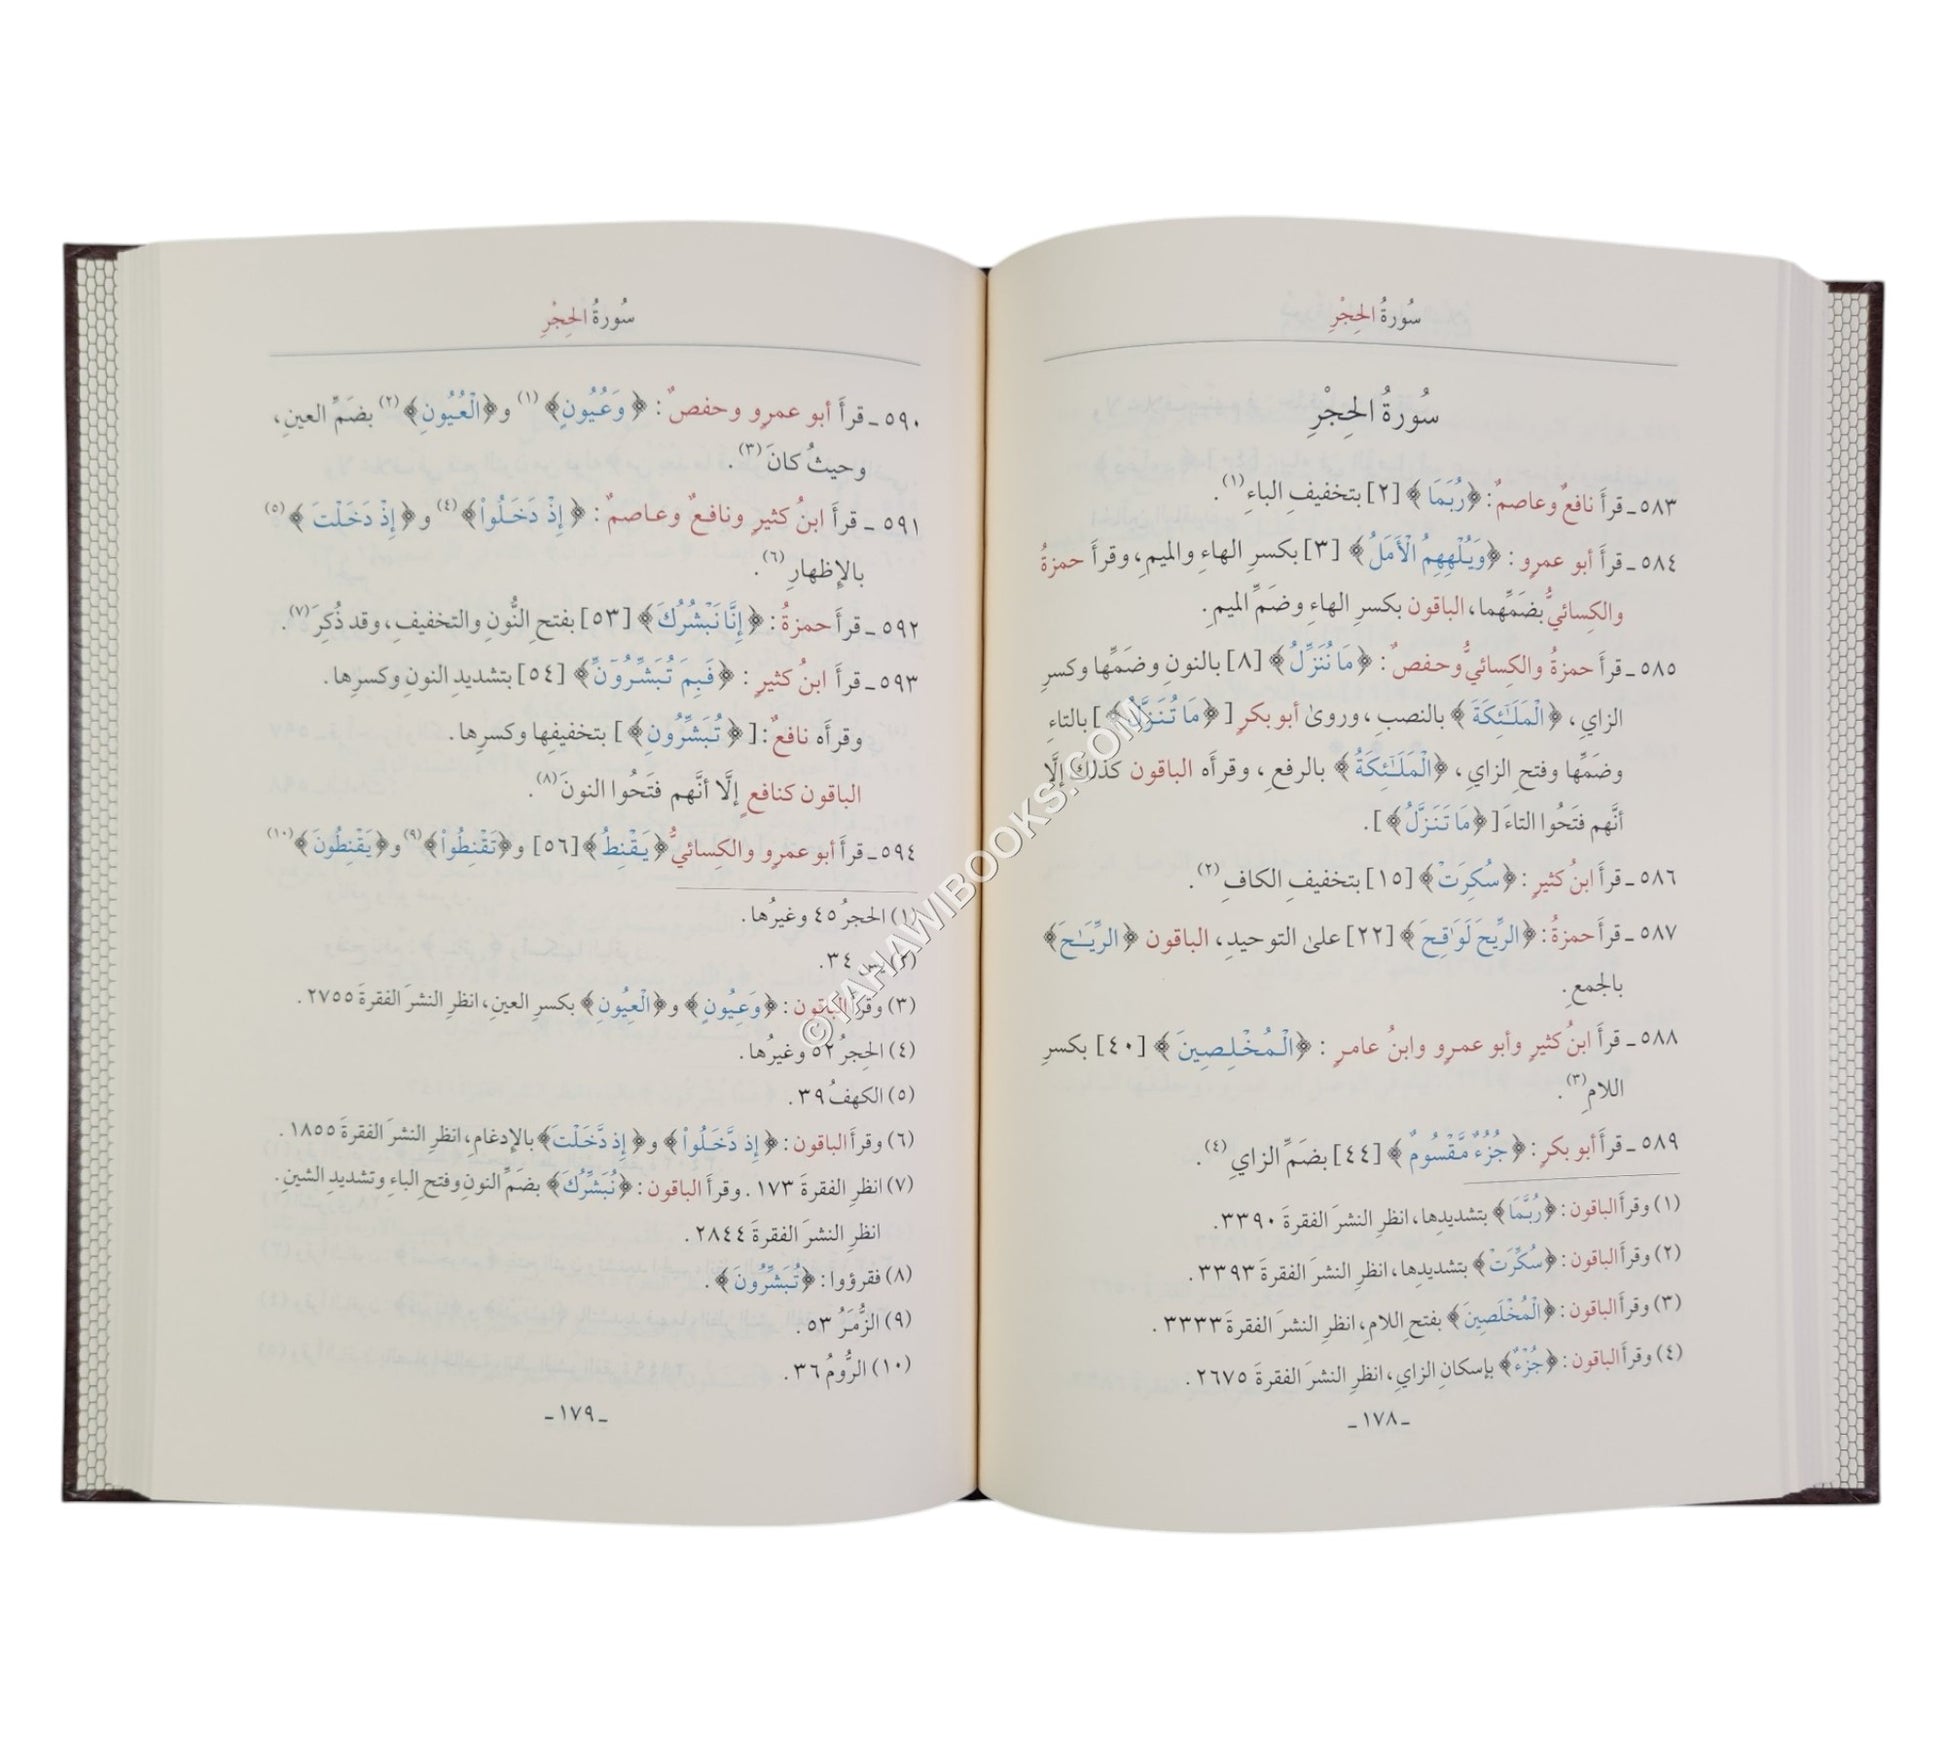 سُورةُ الحِجْرِ
سُورةُ الحِجْرِ
٥٨٣ ـ قرأَ نافعٌ وعاصمٌ: ﴿رُبَمَا﴾ [٢] بتخفيفِ الباءِ(١).
٥٨٤ ـ قرأَ أبو عمرٍو: ﴿وَيُلْهِهِمِ الْأَمَلُ﴾ [٣] بكسرِ الهاءِ والميمِ، وقرأَ حمزةُ
والكِسائيُّ بضَمِّهما، الباقون بكسرِ الهاءِ وضَمِّ الميمِ.
٥٨٥ ـ قرأَ حمزةُ والكِسائيُّ وحفصٌ: ﴿مَا نُنَزِّلُ﴾ [٨] بالنونِ وضَمِّها وكسرِ
الزايِ، ﴿الْمَلَٰٓئِكَةَ﴾ بالنصبِ، وروىٰ أبو بكرٍ [﴿مَا تُنَزَّلُ﴾] بالتاءِ
وضَمِّها وفتحِ الزايِ، ﴿الْمَلَٰٓئِكَةُ﴾ بالرفعِ، وقرأَه الباقون كذلكَ إلَّا
أنَّهم فتَحُوا التاءَ [﴿مَا تَنَزَّلُ﴾].
٥٨٦ ـ قرأَ ابنُ كثيرٍ: ﴿سُكِرَتْ﴾ [١٥] بتخفيفِ الكافِ(٢).
٥٨٧ ـ قرأَ حمزةُ: ﴿الرِّيحَ لَوَٰقِحَ﴾ [٢٢] علىٰ التوحيدِ، الباقون ﴿الرِّيَٰحَ﴾
بالجمعِ.
٥٨٨ ـ قرأَ ابنُ كثيرٍ وأبو عمرٍو وابنُ عامرٍ: ﴿الْمُخْلِصِينَ﴾ [٤٠] بكسرِ
اللامِ(٣).
٥٨٩ ـ قرأَ أبو بكرٍ: ﴿جُزُءٌ مَّقْسُومٌ﴾ [٤٤] بضَمِّ الزايِ(٤).
(١) وقرأَ الباقون: ﴿رُبَّمَا﴾ بتشديدِها، انظرِ النشرَ الفقرةَ ٣٣٩٠.
(٢) وقرأَ الباقون: ﴿سُكِّرَتْ﴾ بتشديدِها، انظرِ النشرَ الفقرةَ ٣٣٩٣.
(٣) وقرأَ الباقون: ﴿الْمُخْلَصِينَ﴾ بفتحِ اللامِ، انظرِ النشرَ الفقرةَ ٣٣٣٣.
(٤) وقرأَ الباقون: ﴿جُزْءٌ﴾ بإسكانِ الزايِ، انظرِ النشرَ الفقرةَ ٢٦٧٥.
ـ ١٧٨ ـ
سُورةُ الحِجْرِ
٥٩٠ ـ قرأَ أبو عمرٍو وحفصٌ: ﴿وَعُيُونٍ﴾(١) و﴿الْعُيُونِ﴾(٢) بضَمِّ العينِ،
وحيثُ كانَ(٣).
٥٩١ ـ قرأَ ابنُ كثيرٍ ونافعٌ وعاصمٌ: ﴿إِذْ دَخَلُواْ﴾(٤) و﴿إِذْ دَخَلْتَ﴾(٥)
بالإظهارِ(٦).
٥٩٢ ـ قرأَ حمزةُ: ﴿إِنَّا نَبْشُرُكَ﴾ [٥٣] بفتحِ النُّونِ والتخفيفِ، وقد ذُكِرَ(٧).
٥٩٣ ـ قرأَ ابنُ كثيرٍ: ﴿فَبِمَ تُبَشِّرُونِّ﴾ [٥٤] بتشديدِ النونِ وكسرِها.
وقرأَه نافعٌ: [﴿تُبَشِّرُونِ﴾] بتخفيفِها وكسرِها.
الباقون كنافعٍ إلَّا أنَّهم فتَحُوا النونَ(٨).
٥٩٤ ـ قرأَ أبو عمرٍو والكِسائيُّ ﴿يَقْنِطُ﴾ [٥٦] و﴿تَقْنِطُواْ﴾(٩) و﴿يَقْنِطُونَ﴾(١٠)
(١) الحجرُ ٤٥ وغيرُها.
(٢) يس ٣٤.
(٣) وقرأَ الباقون: ﴿وَعِيُونٍ﴾ و﴿الْعِيُونِ﴾ بكسرِ العينِ، انظرِ النشرَ الفقرةَ ٢٧٥٥.
(٤) الحِجرُ ٥٢ وغيرُها.
(٥) الكهفُ ٣٩.
(٦) وقرأَ الباقون: ﴿إِذ دَّخَلُواْ﴾ و﴿إِذ دَّخَلْتَ﴾ بالإدغامِ، انظرِ النشرَ الفقرةَ ١٨٥٥.
(٧) انظرِ الفقرةَ ١٧٣. وقرأَ الباقون: ﴿نُبَشِّرُكَ﴾ بضَمِّ النونِ وفتحِ الباءِ وتشديدِ الشينِ.
انظرِ النشرَ الفقرةَ ٢٨٤٤.
(٨) فقرؤوا: ﴿تُبَشِّرُونَ﴾.
(٩) الزُّمَرُ ٥٣.
(١٠) الرُّومُ ٣٦.
ـ ١٧٩ ـ
©TAHAWIBOOKS.COM